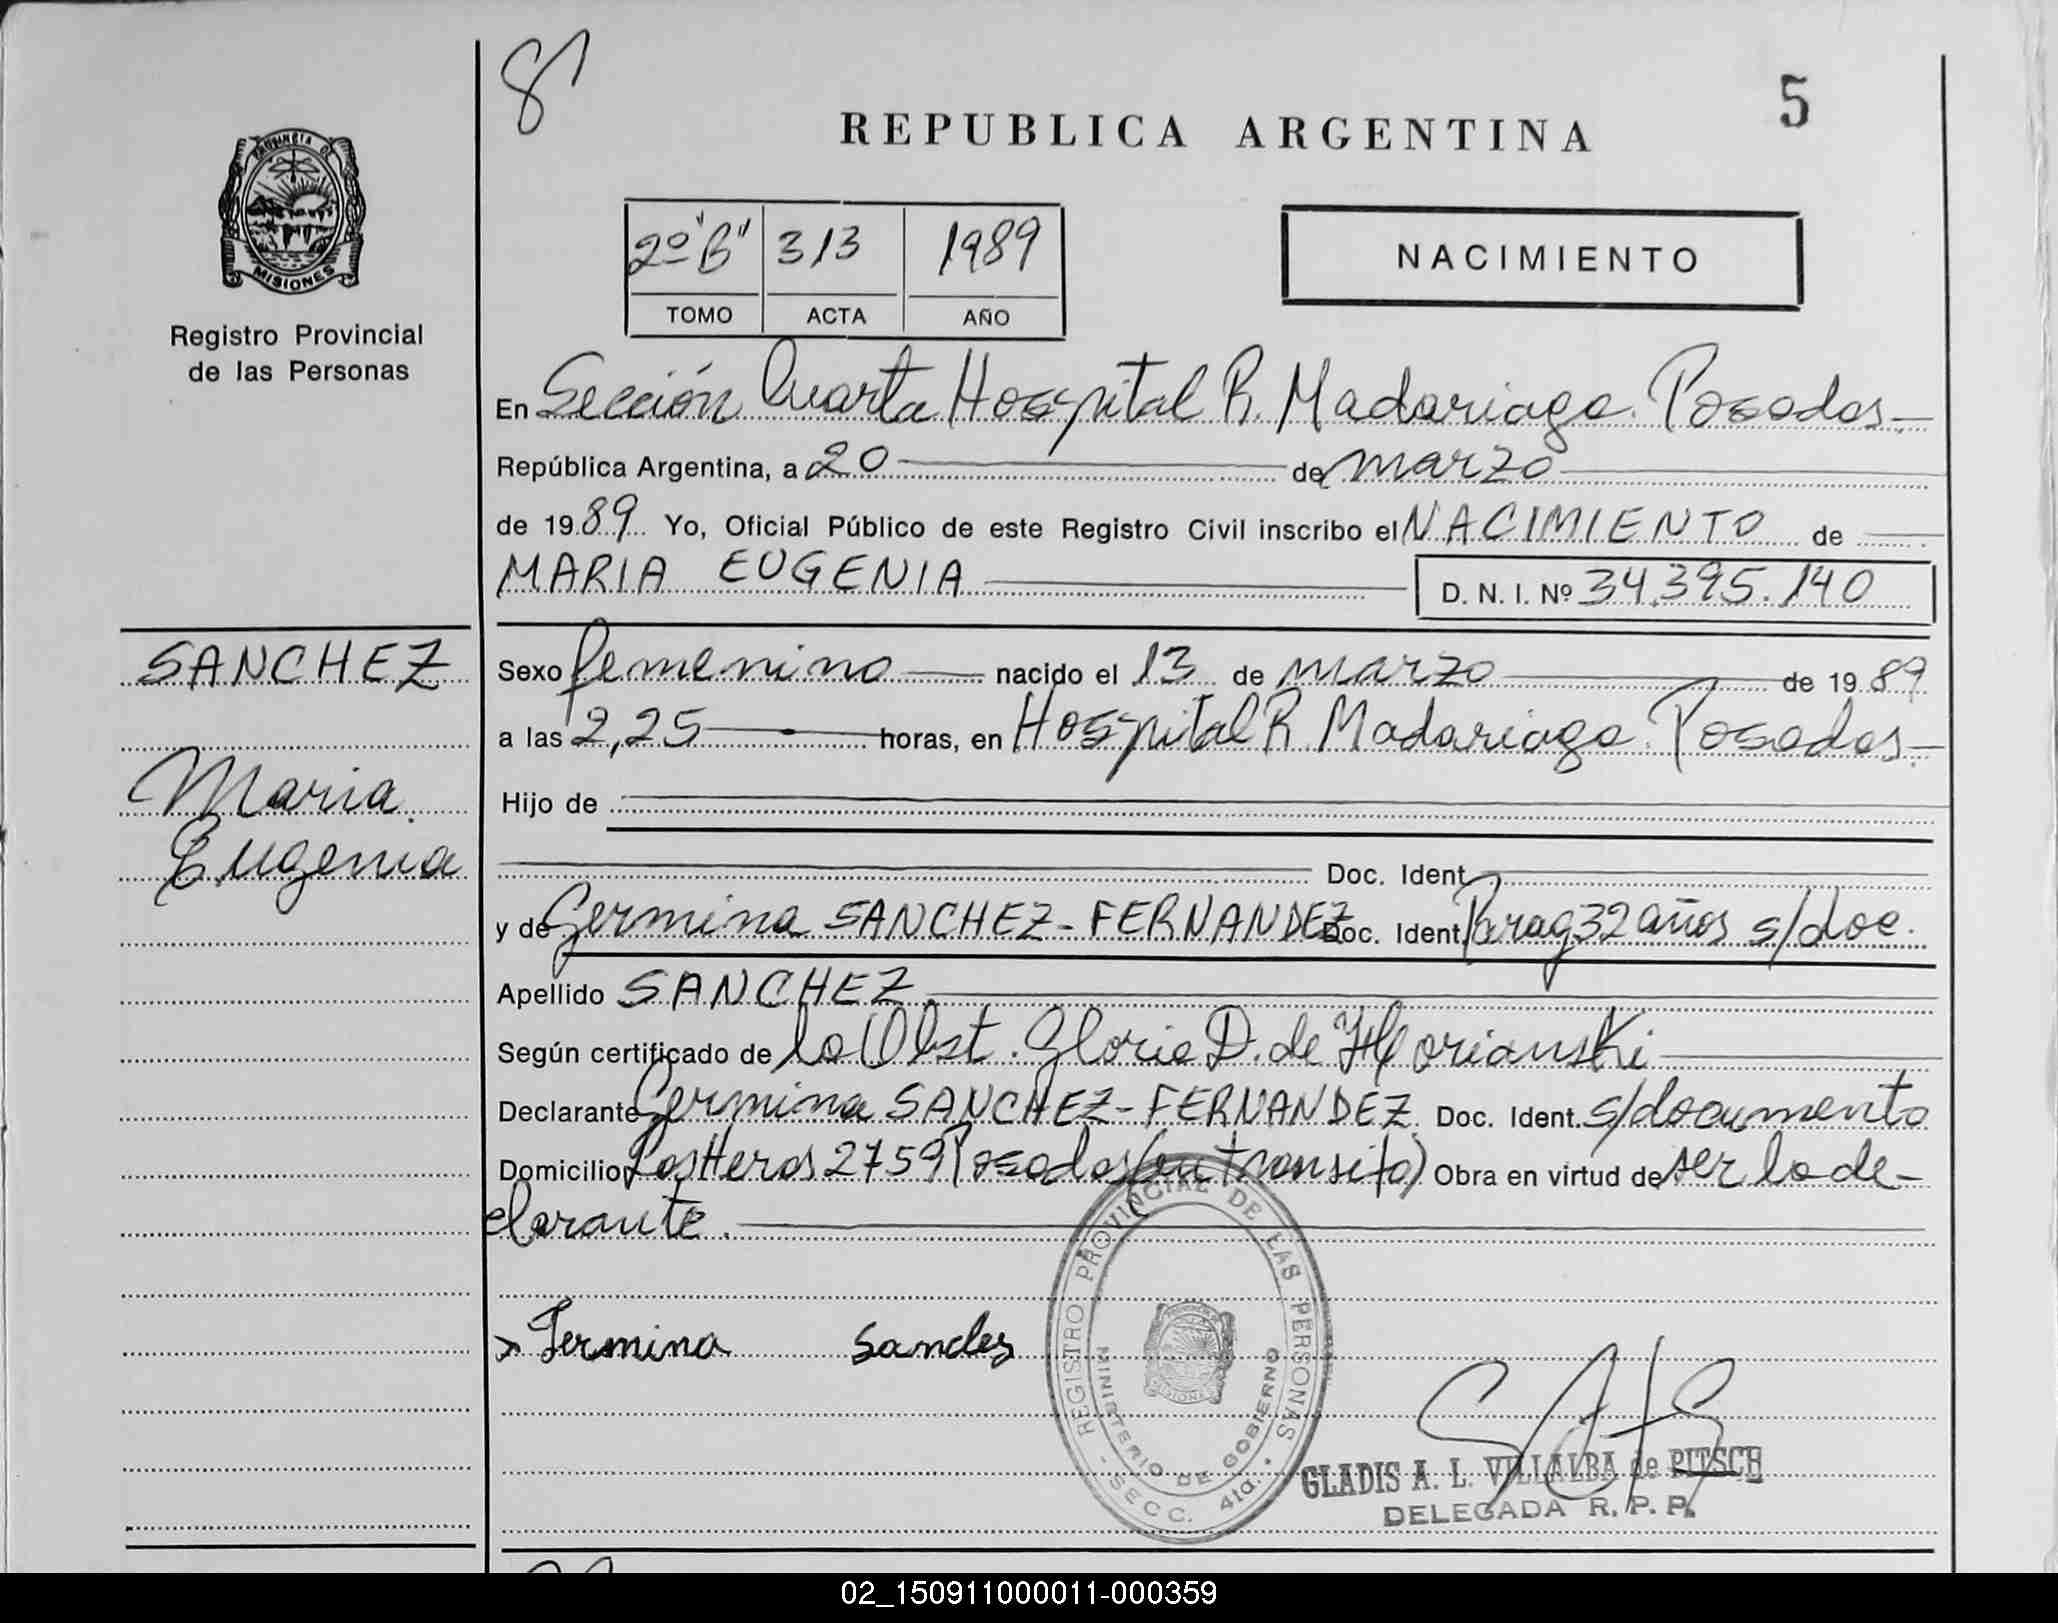 8
5
REPUBLICA ARGENTINA
PROVINCIA DE
MISIONES
Registro Provincial
de las Personas
2º "B" 313 1989
TOMO ACTA AÑO
NACIMIENTO
En Sección Cuarta Hospital R. Madariaga. Posadas
República Argentina, a 20 de marzo
de 1989 Yo, Oficial Público de este Registro Civil inscribo el NACIMIENTO de
MARIA EUGENIA D. N. I. Nº 34.395.140
SANCHEZ
Maria
Eugenia
Sexo femenino nacido el 13 de marzo de 1989
a las 2,25 horas, en Hospital R Madariaga. Posadas
Hijo de
Doc. Ident.
y de Germina SANCHEZ-FERNANDEZ Doc. Ident. Parag 32 años s/doc.
Apellido SANCHEZ.
Según certificado de la Obst. Gloria D. de
Declarante Germina SANCHEZ-FERNANDEZ Doc. Ident. s/documento
Domicilio Los Heros 2759 Posadas (en transito) Obra en virtud de ser la de-
clarante.
Germina Sandes
REGISTRO PROVINCIAL DE LAS PERSONAS
MINISTERIO DE GOBIERNO
SECC. 4ta.
GLADIS A. L. VILLALBA de PITSCH
DELEGADA R. P. P.
02_150911000011-000359